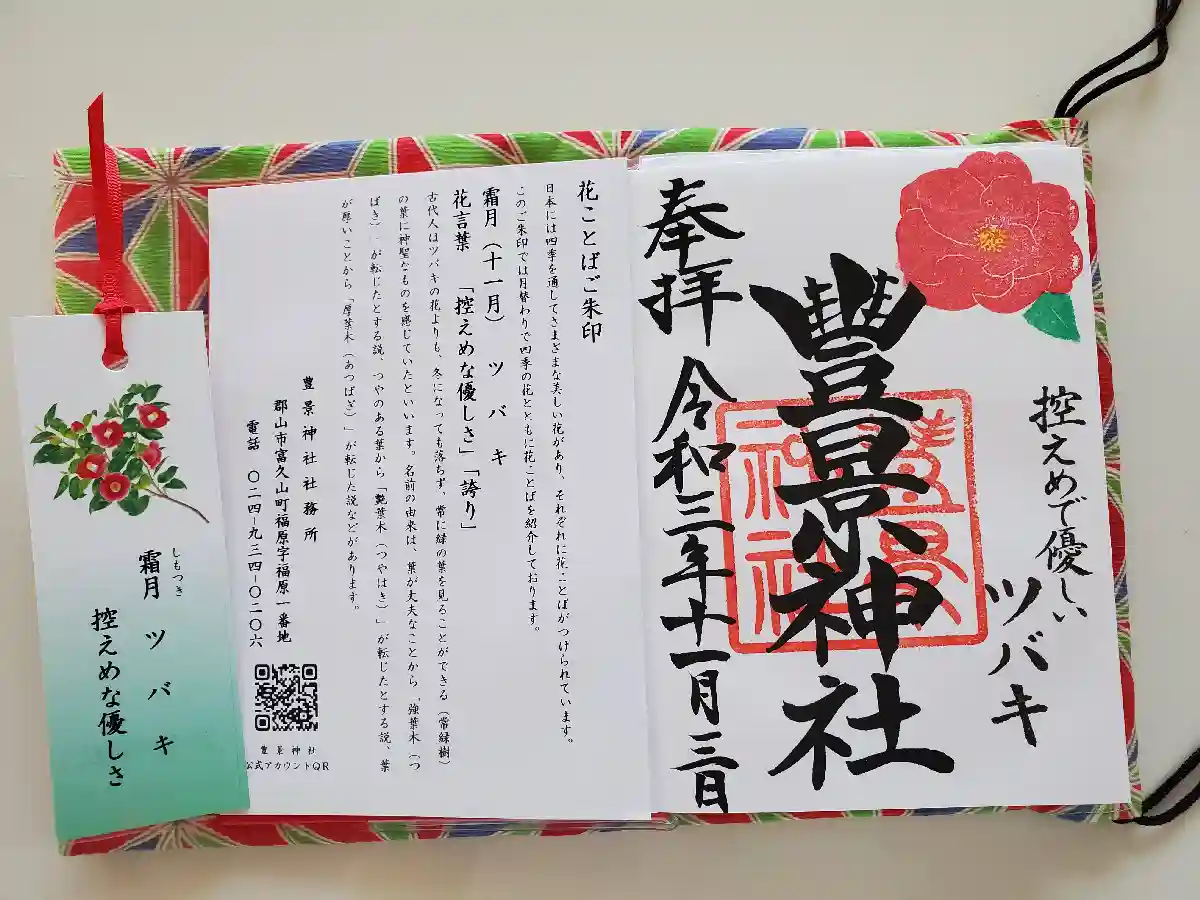 控えめで優しい
ツバキ
豊景神社
豊景
神社
奉拝
令和三年十一月三日
花ことばご朱印
日本には四季を通してさまざまな美しい花があり、それぞれに花ことばがつけられています。
このご朱印では月替わりで四季の花とともに花ことばを紹介しております。
霜月（十一月） ツバキ
花言葉 「控えめな優しさ」「誇り」
古代人はツバキの花よりも、冬になっても落ちず、常に緑の葉を見ることができる（常緑樹）
の葉に神聖なものを感じていたといいます。名前の由来は、葉が丈夫なことから、「強葉木（つ
ばき）」が転じたとする説、つやのある葉から「艶葉木（つやはき）」が転じたとする説、葉
が厚いことから「厚葉木（あつばき）」が転じた説などがあります。
豊景神社社務所
郡山市富久山町福原字福原一番地
電話 〇二四－九三四－〇二〇六
豊景神社
公式アカウントQR
しもつき
霜月 ツバキ
控えめな優しさ